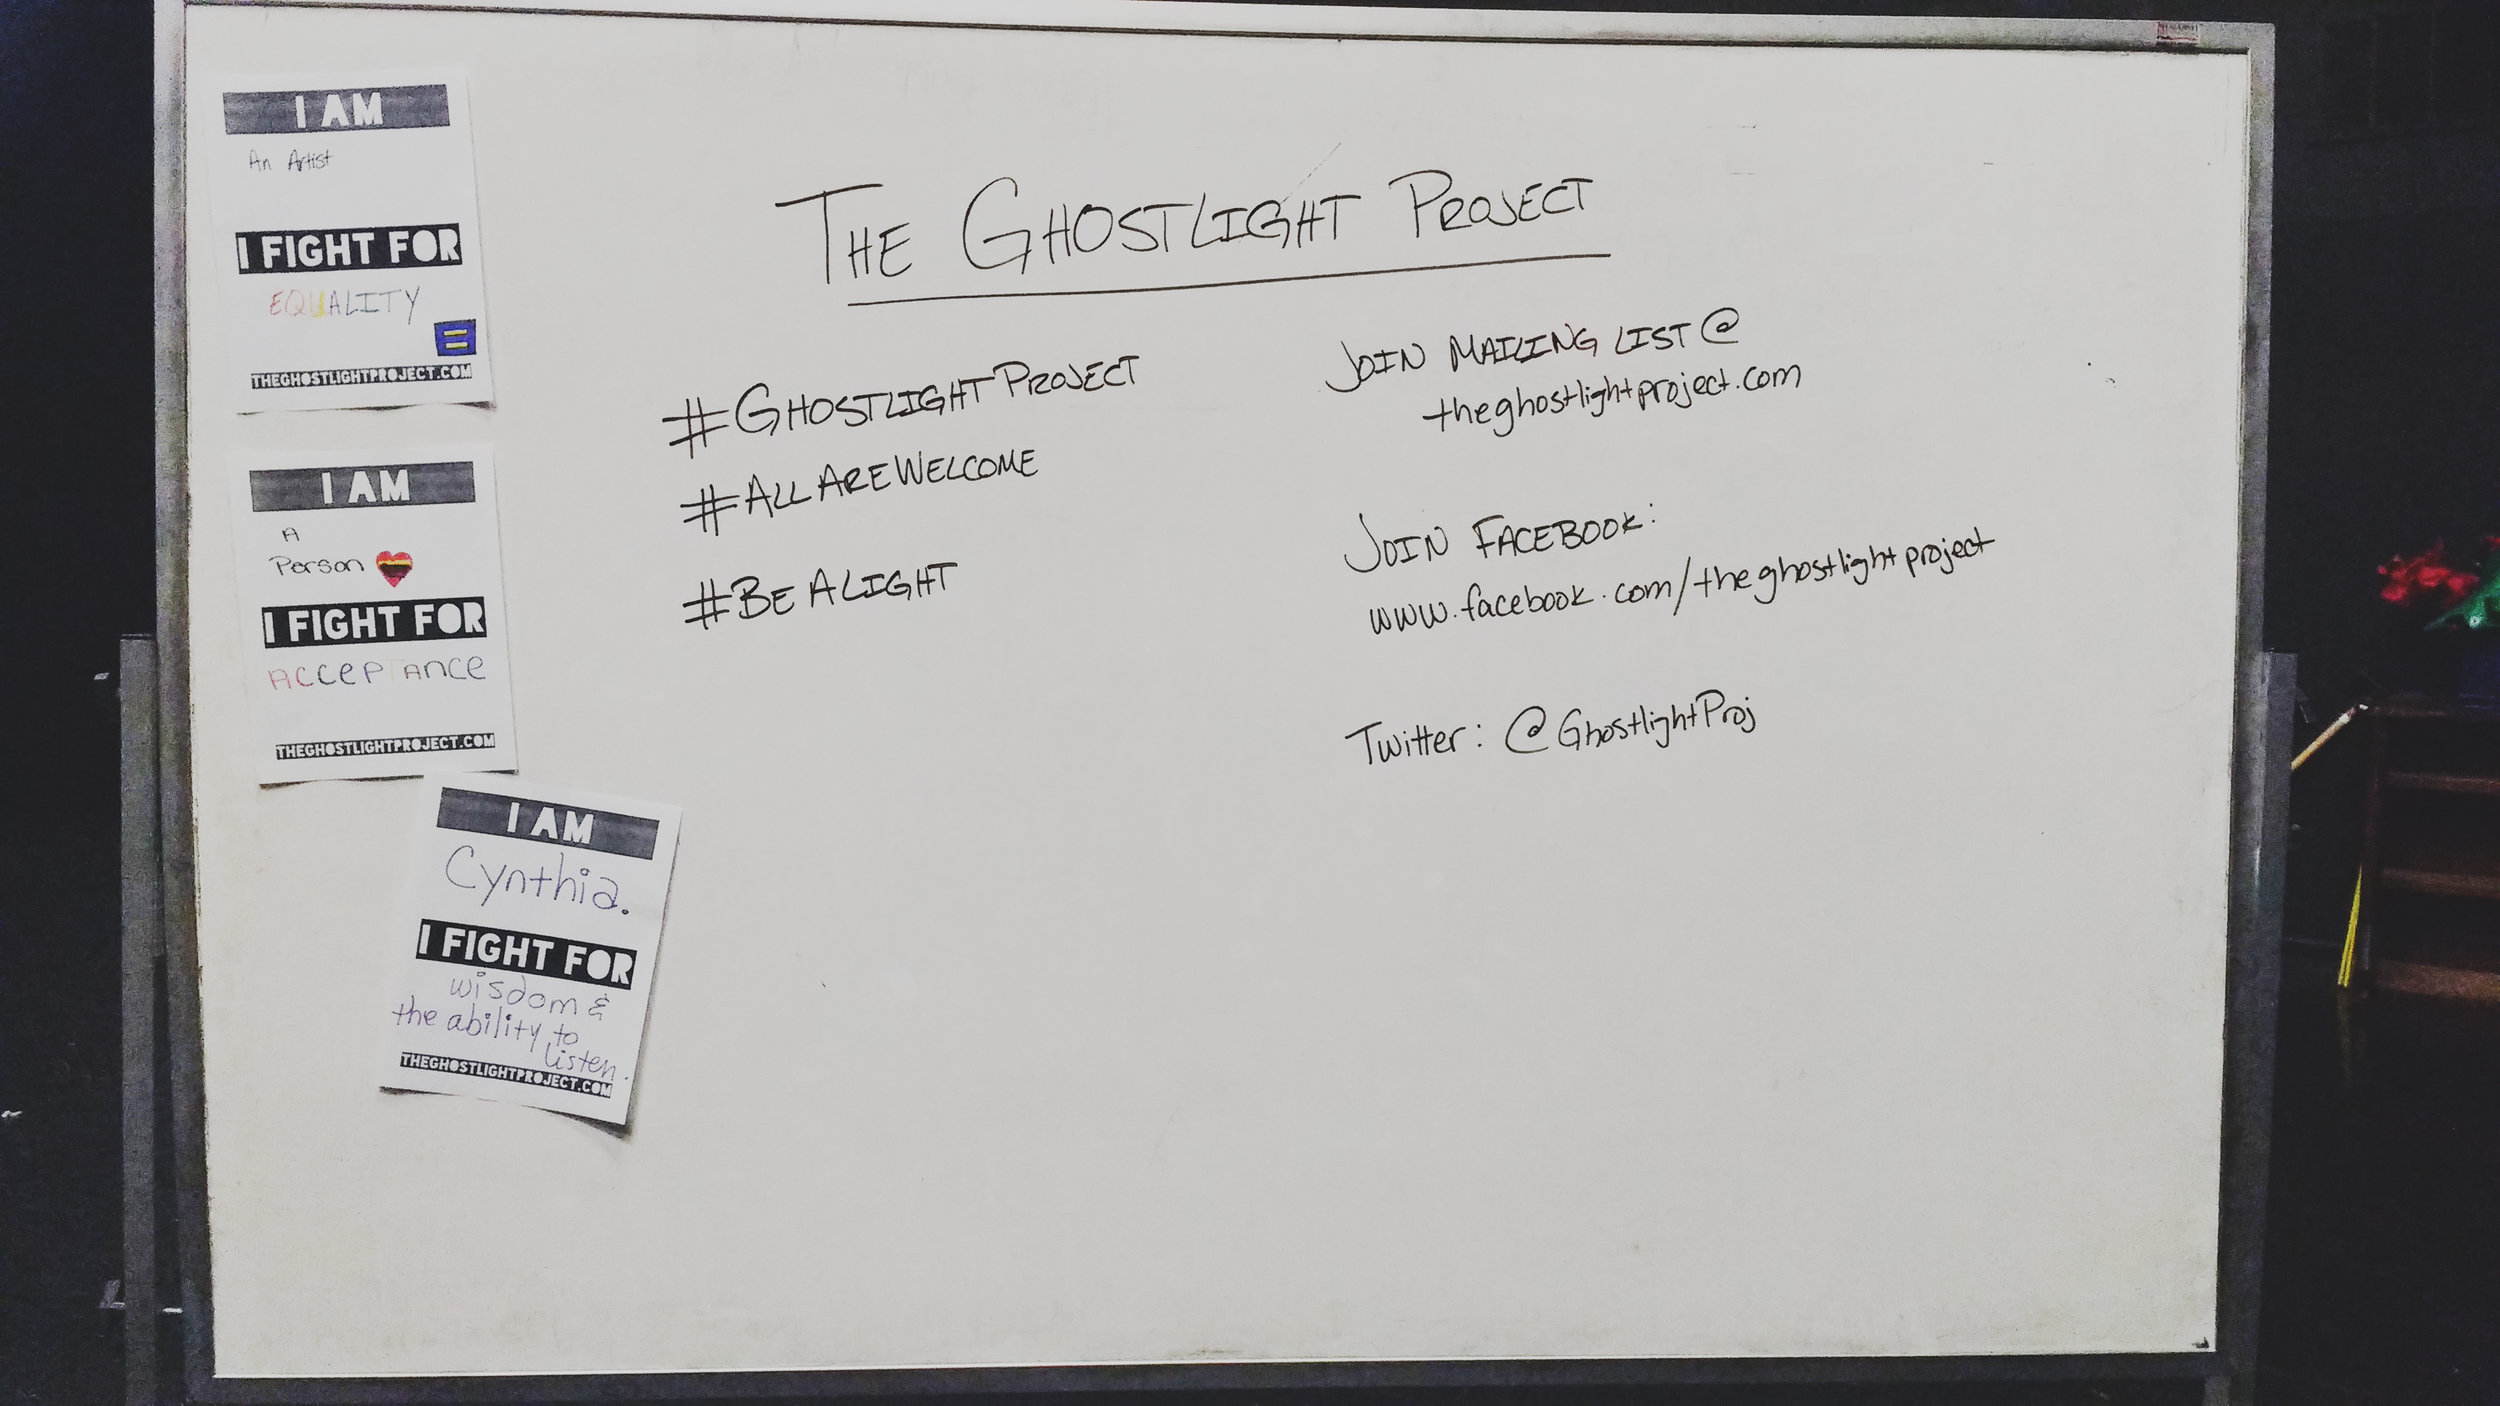 I AM
An Artist
I FIGHT FOR
EQUALITY
THEGHOSTLIGHTPROJECT.COM
I AM
A
Person
I FIGHT FOR
ACCEPTANCE
THEGHOSTLIGHTPROJECT.COM
I AM
Cynthia.
I FIGHT FOR
wisdom &
the ability to
listen.
THEGHOSTLIGHTPROJECT.COM
THE GHOSTLIGHT PROJECT
#GHOSTLIGHTPROJECT
#ALLAREWELCOME
#BEALIGHT
JOIN MAILING LIST @
theghostlightproject.com
JOIN FACEBOOK:
www.facebook.com/theghostlightproject
Twitter: @GhostlightProj